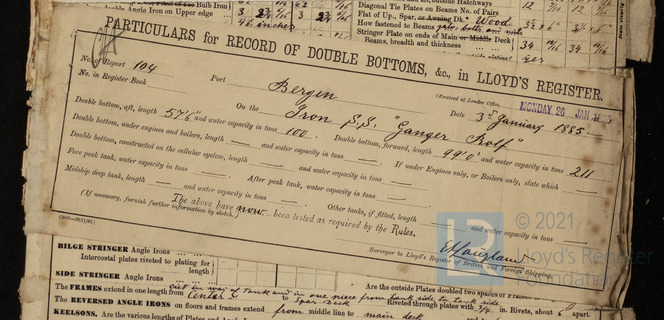 Double Angle Iron on Upper edge
46 inches
outside Hatchways
Diagonal Tie Plates on Beams No. of Pairs
Flat of Up., Spar, or Awning Dk. Wood
How fastened to Beams
Stringer Plate on ends of Main or Middle Deck
Beams, breadth and thickness
PARTICULARS for RECORD OF DOUBLE BOTTOMS, &c., in LLOYD'S REGISTER.
No. of Report 104 Port Bergen (Received at London Office,
MONDAY 26 JAN
No. in Register Book On the Iron S.S. "Ganger Rolf" Date 3rd January 1885
Double bottom, aft, length 57'6" and water capacity in tons 100. Double bottom, forward, length 99'0" and water capacity in tons 211
Double bottom, under engines and boilers, length — and water capacity in tons — If under Engines only, or Boilers only, state which —
Double bottom, constructed on the cellular system, length — and water capacity in tons —
Fore peak tank, water capacity in tons — After peak tank, water capacity in tons —
Midship deep tank, length — and water capacity in tons — Other tanks, if fitted, length — and water capacity in tons —
(If necessary, furnish further information by sketch.) The above have now been tested as required by the Rules.
Surveyor to Lloyd's Register of British and Foreign Shipping.
© 2021
Lloyd's Register
Foundation
BILGE STRINGER Angle Irons
Intercostal plates riveted to plating for length
SIDE STRINGER Angle Irons
Are the outside Plates doubled two spaces of Frames
The FRAMES extend in one length from Center to Spar Deck Riveted through plates with 3/4 in. Rivets, about apart.
The REVERSED ANGLE IRONS on floors and frames extend from middle line to main deck
KEELSONS. Are the various lengths of Plates